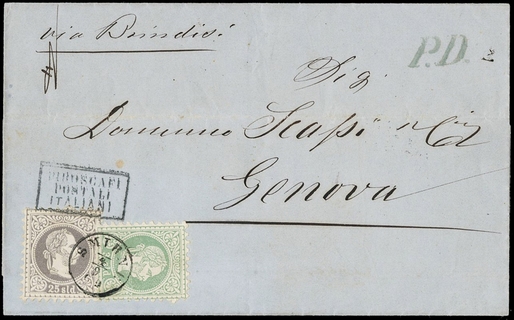 via Brindisi
P.D.
Sig.
Domenico Scapi e C.
Genova
PIROSCAFI
POSTALI
ITALIANI
SMIRN
25 sld